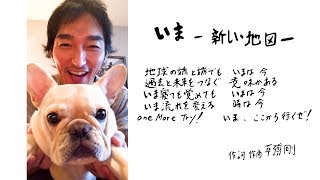 いま - 新しい地図 -
地球の端と端でも いまは今
過去と未来をつなぐ 意味がある
いま寝ても覚めても いまは今
いま流れを変える 時は今
one More Try! いま、ここから行くぜ!
作詞 作曲 草彅剛